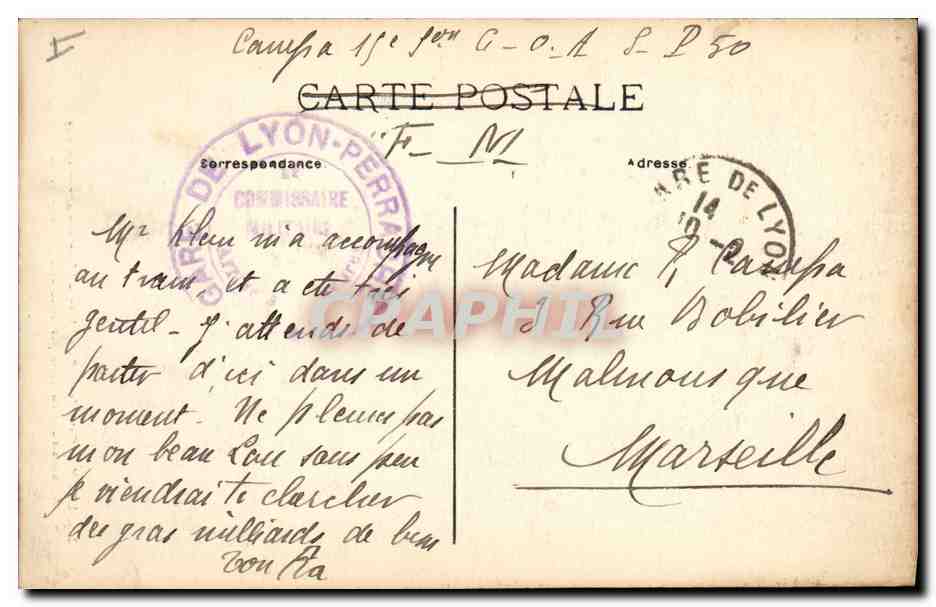 I
Campa 15e Son C-O-A S-P 50
CARTE POSTALE
F_M
Correspondance
Adresse
GARE DE LYON-PERRA
LE
COMMISSAIRE
MILITAIRE
ARE DE LYON
14
10 -2
Mr Klein m'a accompagné
au train, et a été très
gentil - J'attends de
partir d'ici dans un
moment. Ne pleures pas
mon beau Lou sous peu
je viendrai te chercher
des gros milliards de bens
ton
Madame P. Campa
3 Rue Bobilier
Malmousque
Marseille
CPAPHIL